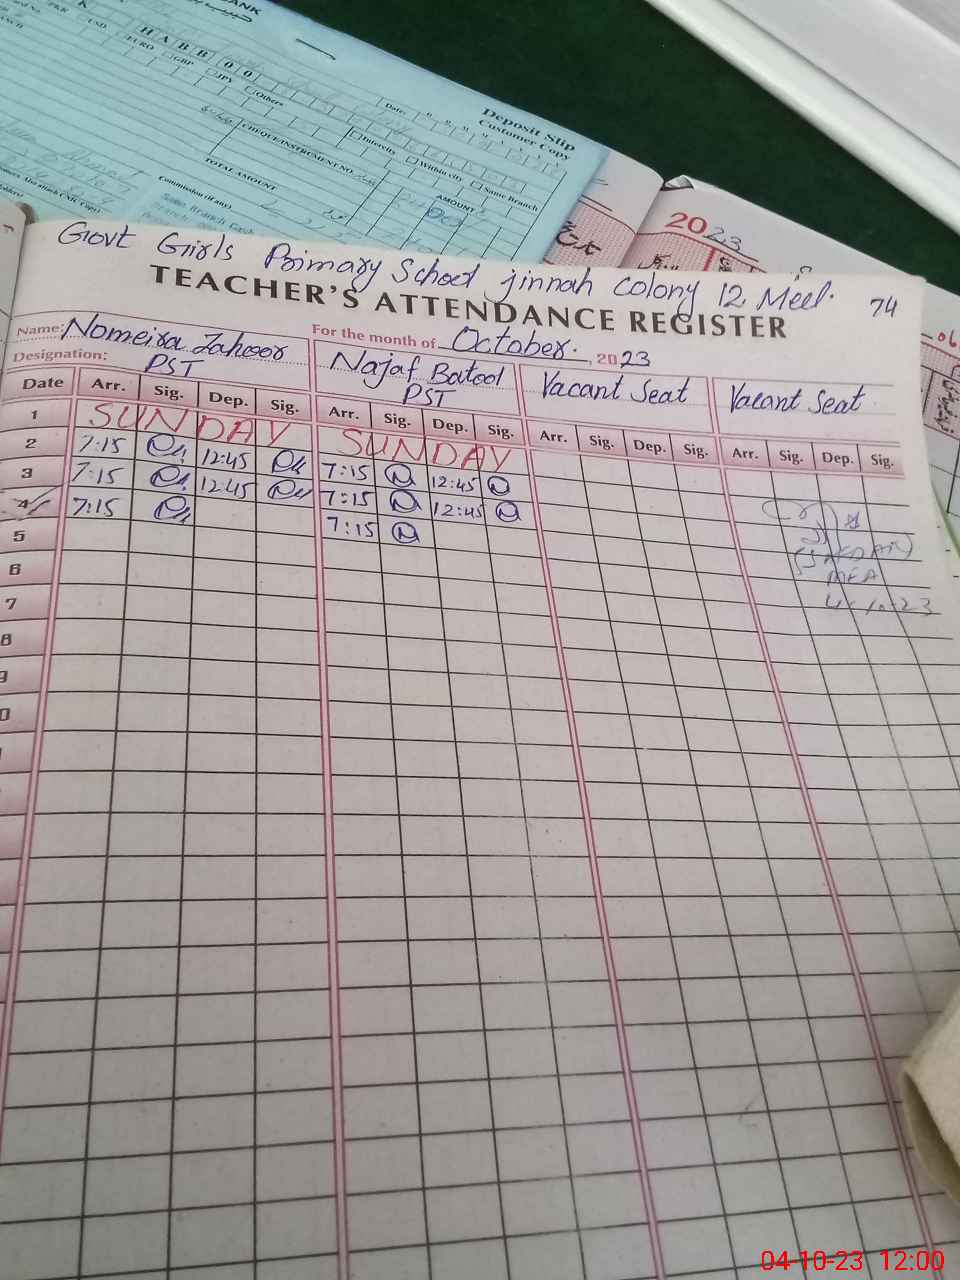 ANK
HABB00
USD
EURO
GBP
JPY
Others
Date:
Deposit Slip
Customer Copy
CHEQUE/INSTRUMENT NO.
Intercity
Within city
Same Branch
TOTAL AMOUNT
AMOUNT
Commission (if any)
2023
06
Govt Girls Primary School jinnah Colony 12 Meel.
74
TEACHER'S ATTENDANCE REGISTER
For the month of October. , 2023
Name: Nomeira Zahoor
Najaf Batool
Vacant Seat
Vacant Seat
Designation: PST
PST
Date Arr. Sig. Dep. Sig. Arr. Sig. Dep. Sig. Arr. Sig. Dep. Sig. Arr. Sig. Dep. Sig.
1 SUNDAY SUNDAY
2 7:15 12:45 7:15 12:45
3 7:15 12:45 7:15 12:45
4 7:15 7:15
5
6
7
8
9
0
MEA
4-10-23
04-10-23 12:00